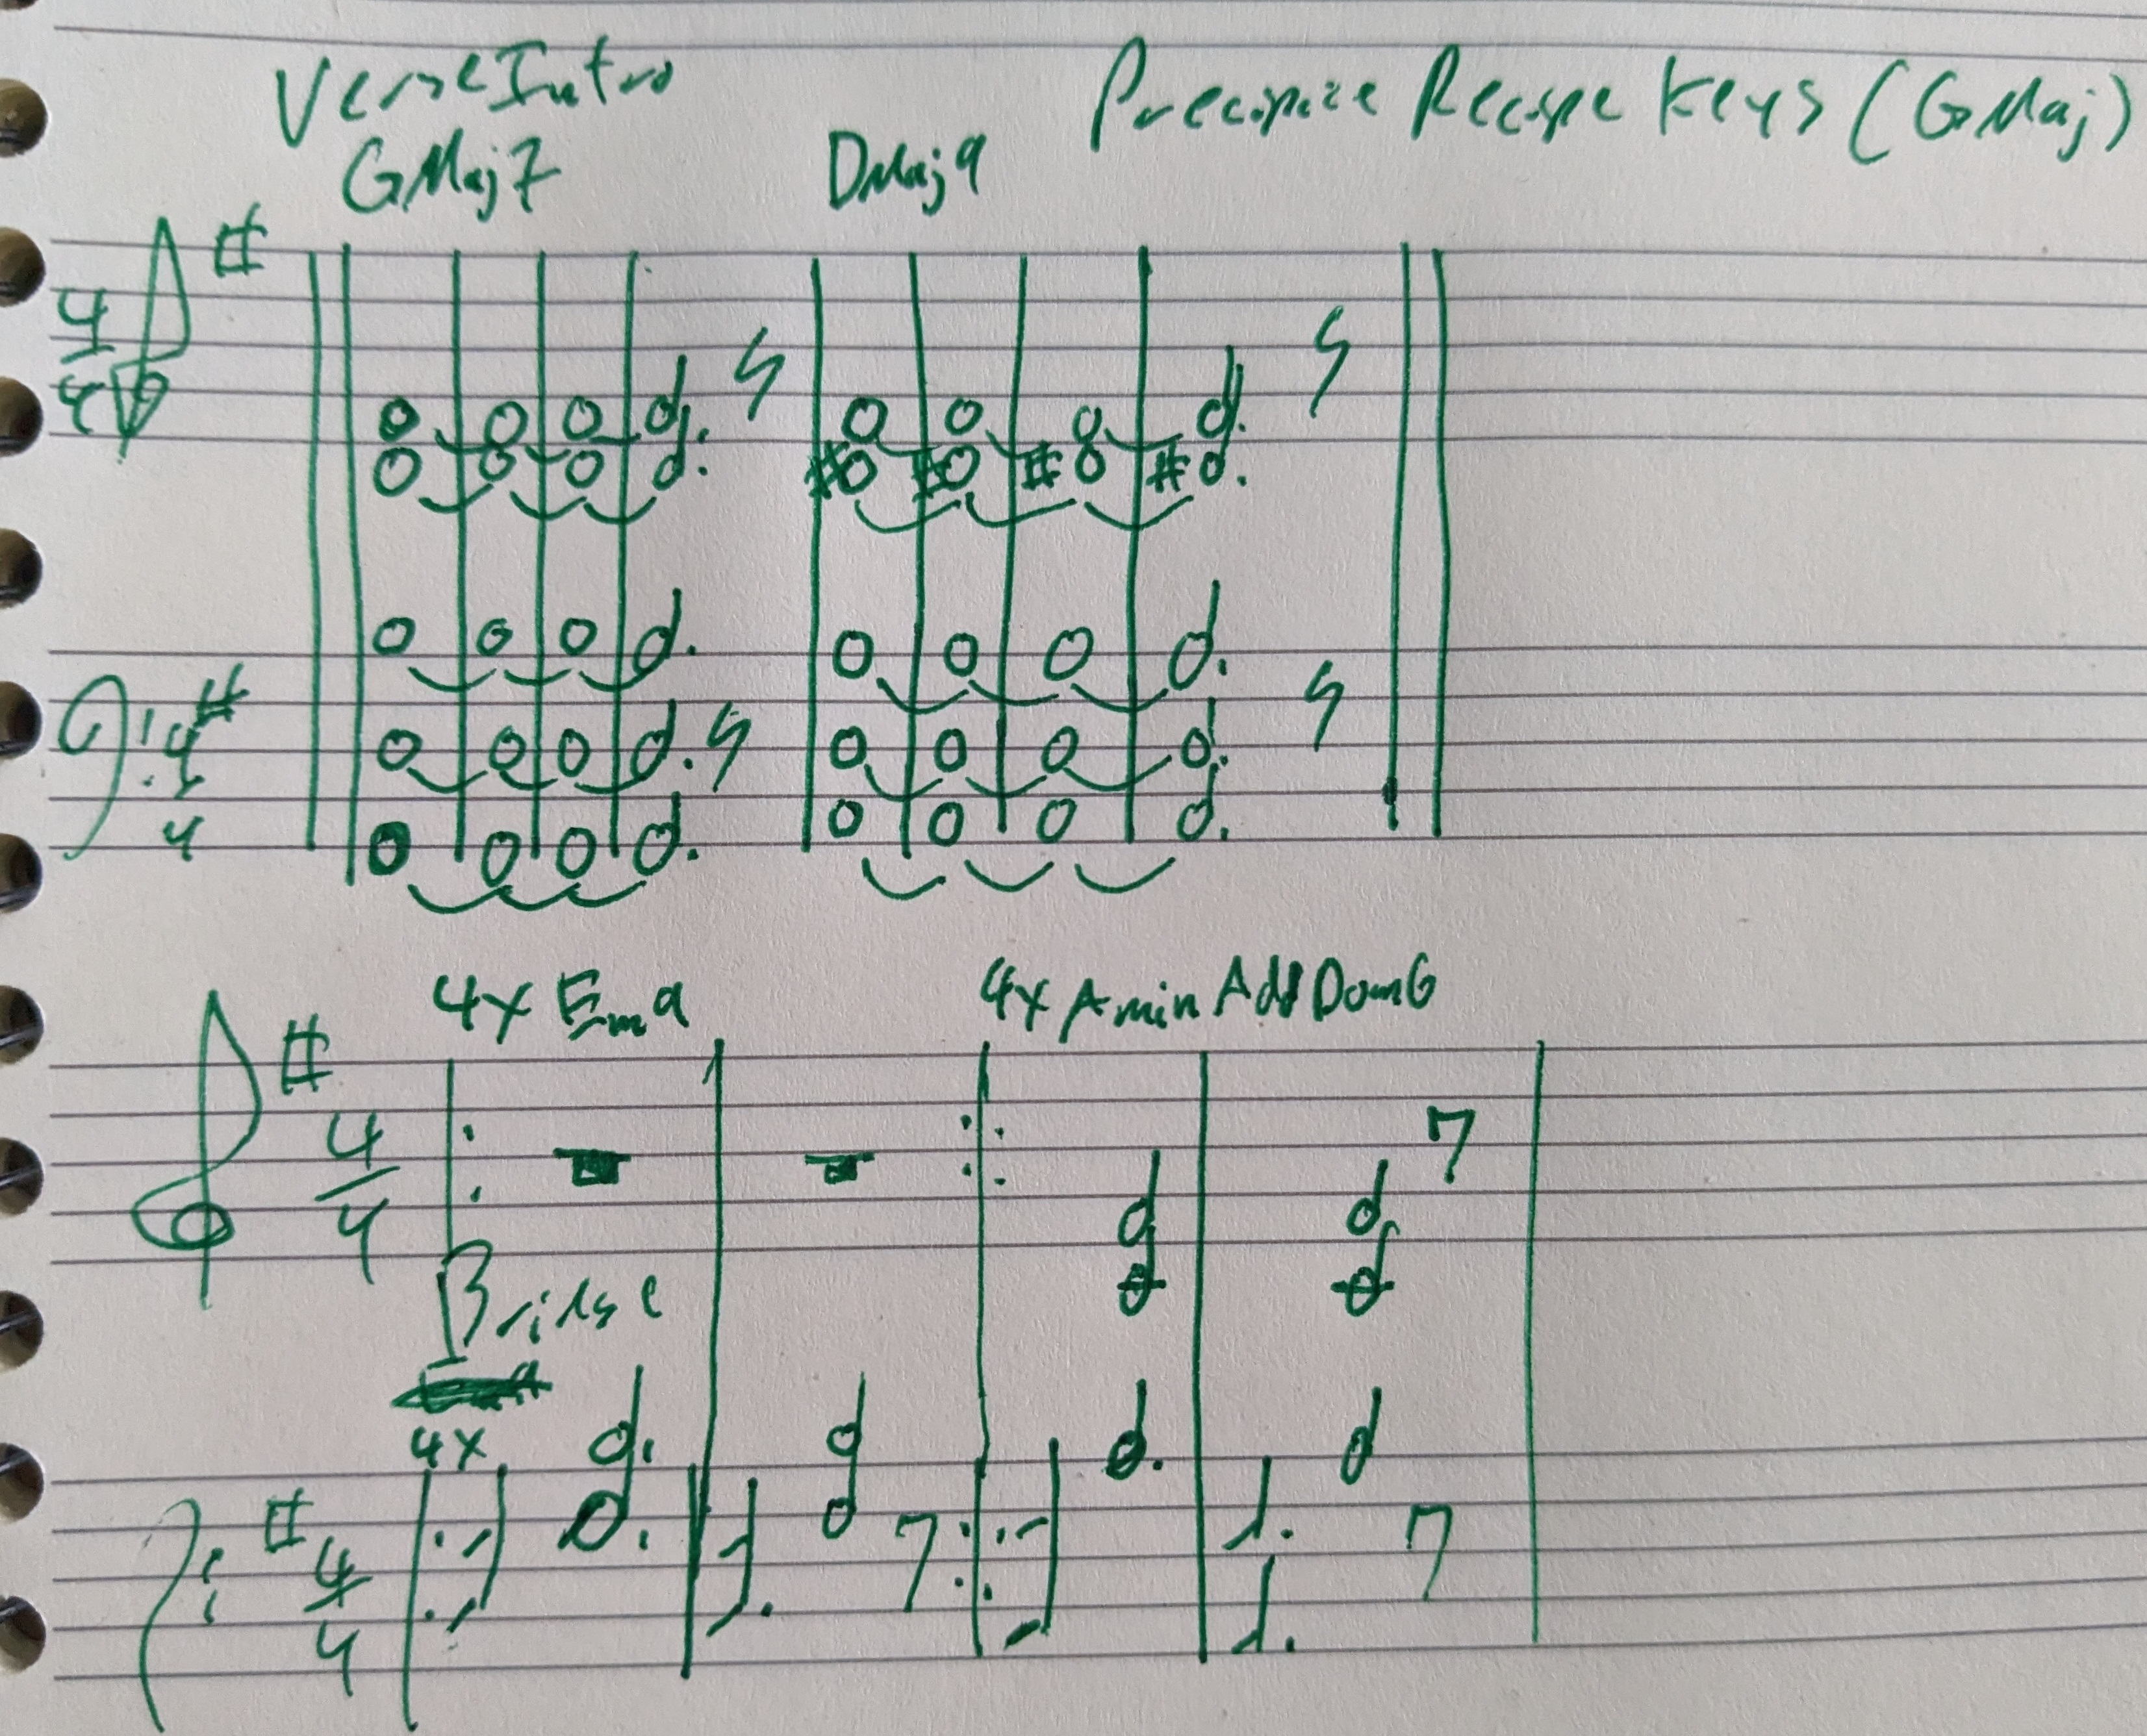 Verse Intro
Precipice Recipe Keys (GMaj)
GMaj7 DMaj9
4
4
4
4
4x Em9 4x Amin Add Dom6
4
4
Bridge
4x
4
4